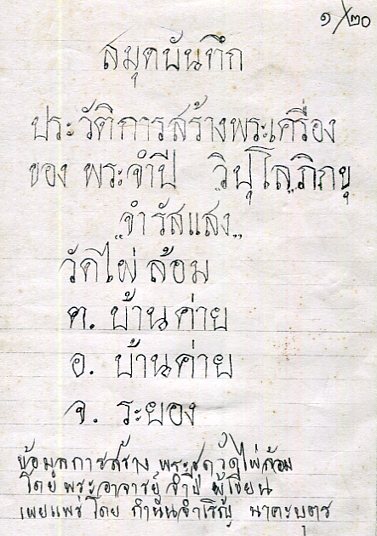 ๑/๒๐
สมุดบันทึก
ประวัติการสร้างพระเครื่อง
ของ พระจำปี วิปุโลภิกขุ
"จำรัสแสง"
วัดไผ่ล้อม
ต. บ้านค่าย
อ. บ้านค่าย
จ. ระยอง
ข้อมูลการสร้าง พระชุดวัดไผ่ล้อม
โดย พระอาจารย์ จำปี ผู้เขียน
เผยแพร่ โดย กำนันจำเริญ นาตะบุตร